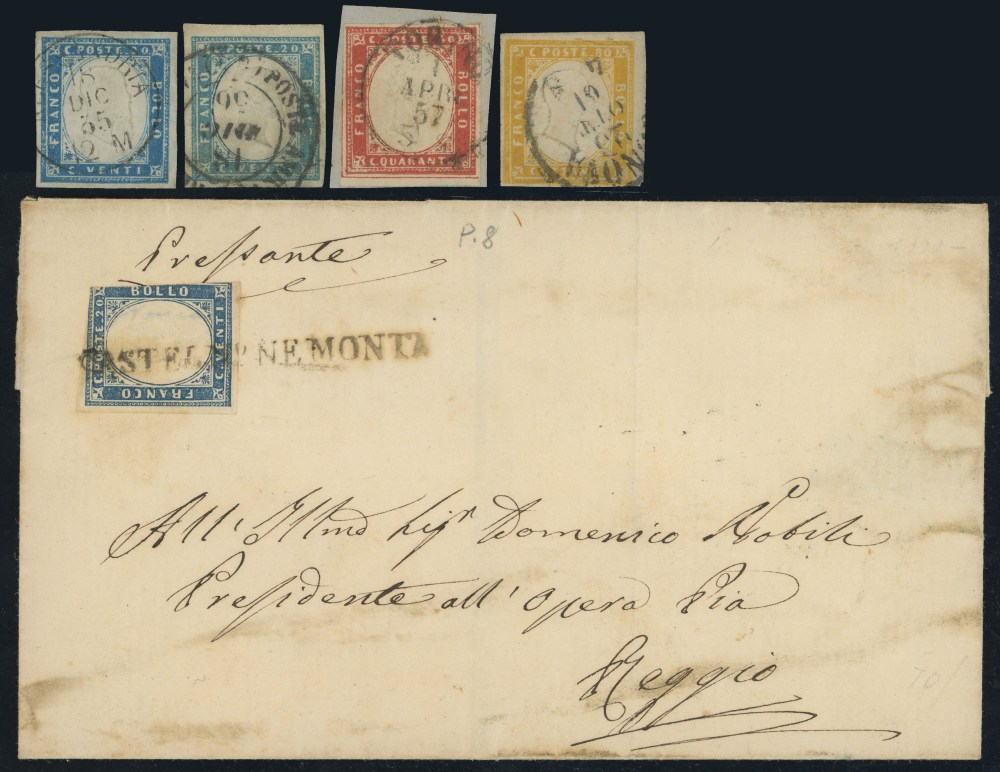 C. POSTE. 20
FRANCO
BOLLO
C. VENTI
15
DIC
55
2 M
C. POSTE. 20
FRANCO
BOLLO
C. POSTE. 40
FRANCO
BOLLO
C. QUARANT
TORINO
APR
57
C. POSTE. 80
FRANCO
BOLLO
P.8
Pressante
BOLLO
C. POSTE. 20
C. VENTI
FRANCO
All' Illmo Sigr Domenico Nobili
Presidente all' Opera Pia
Reggio